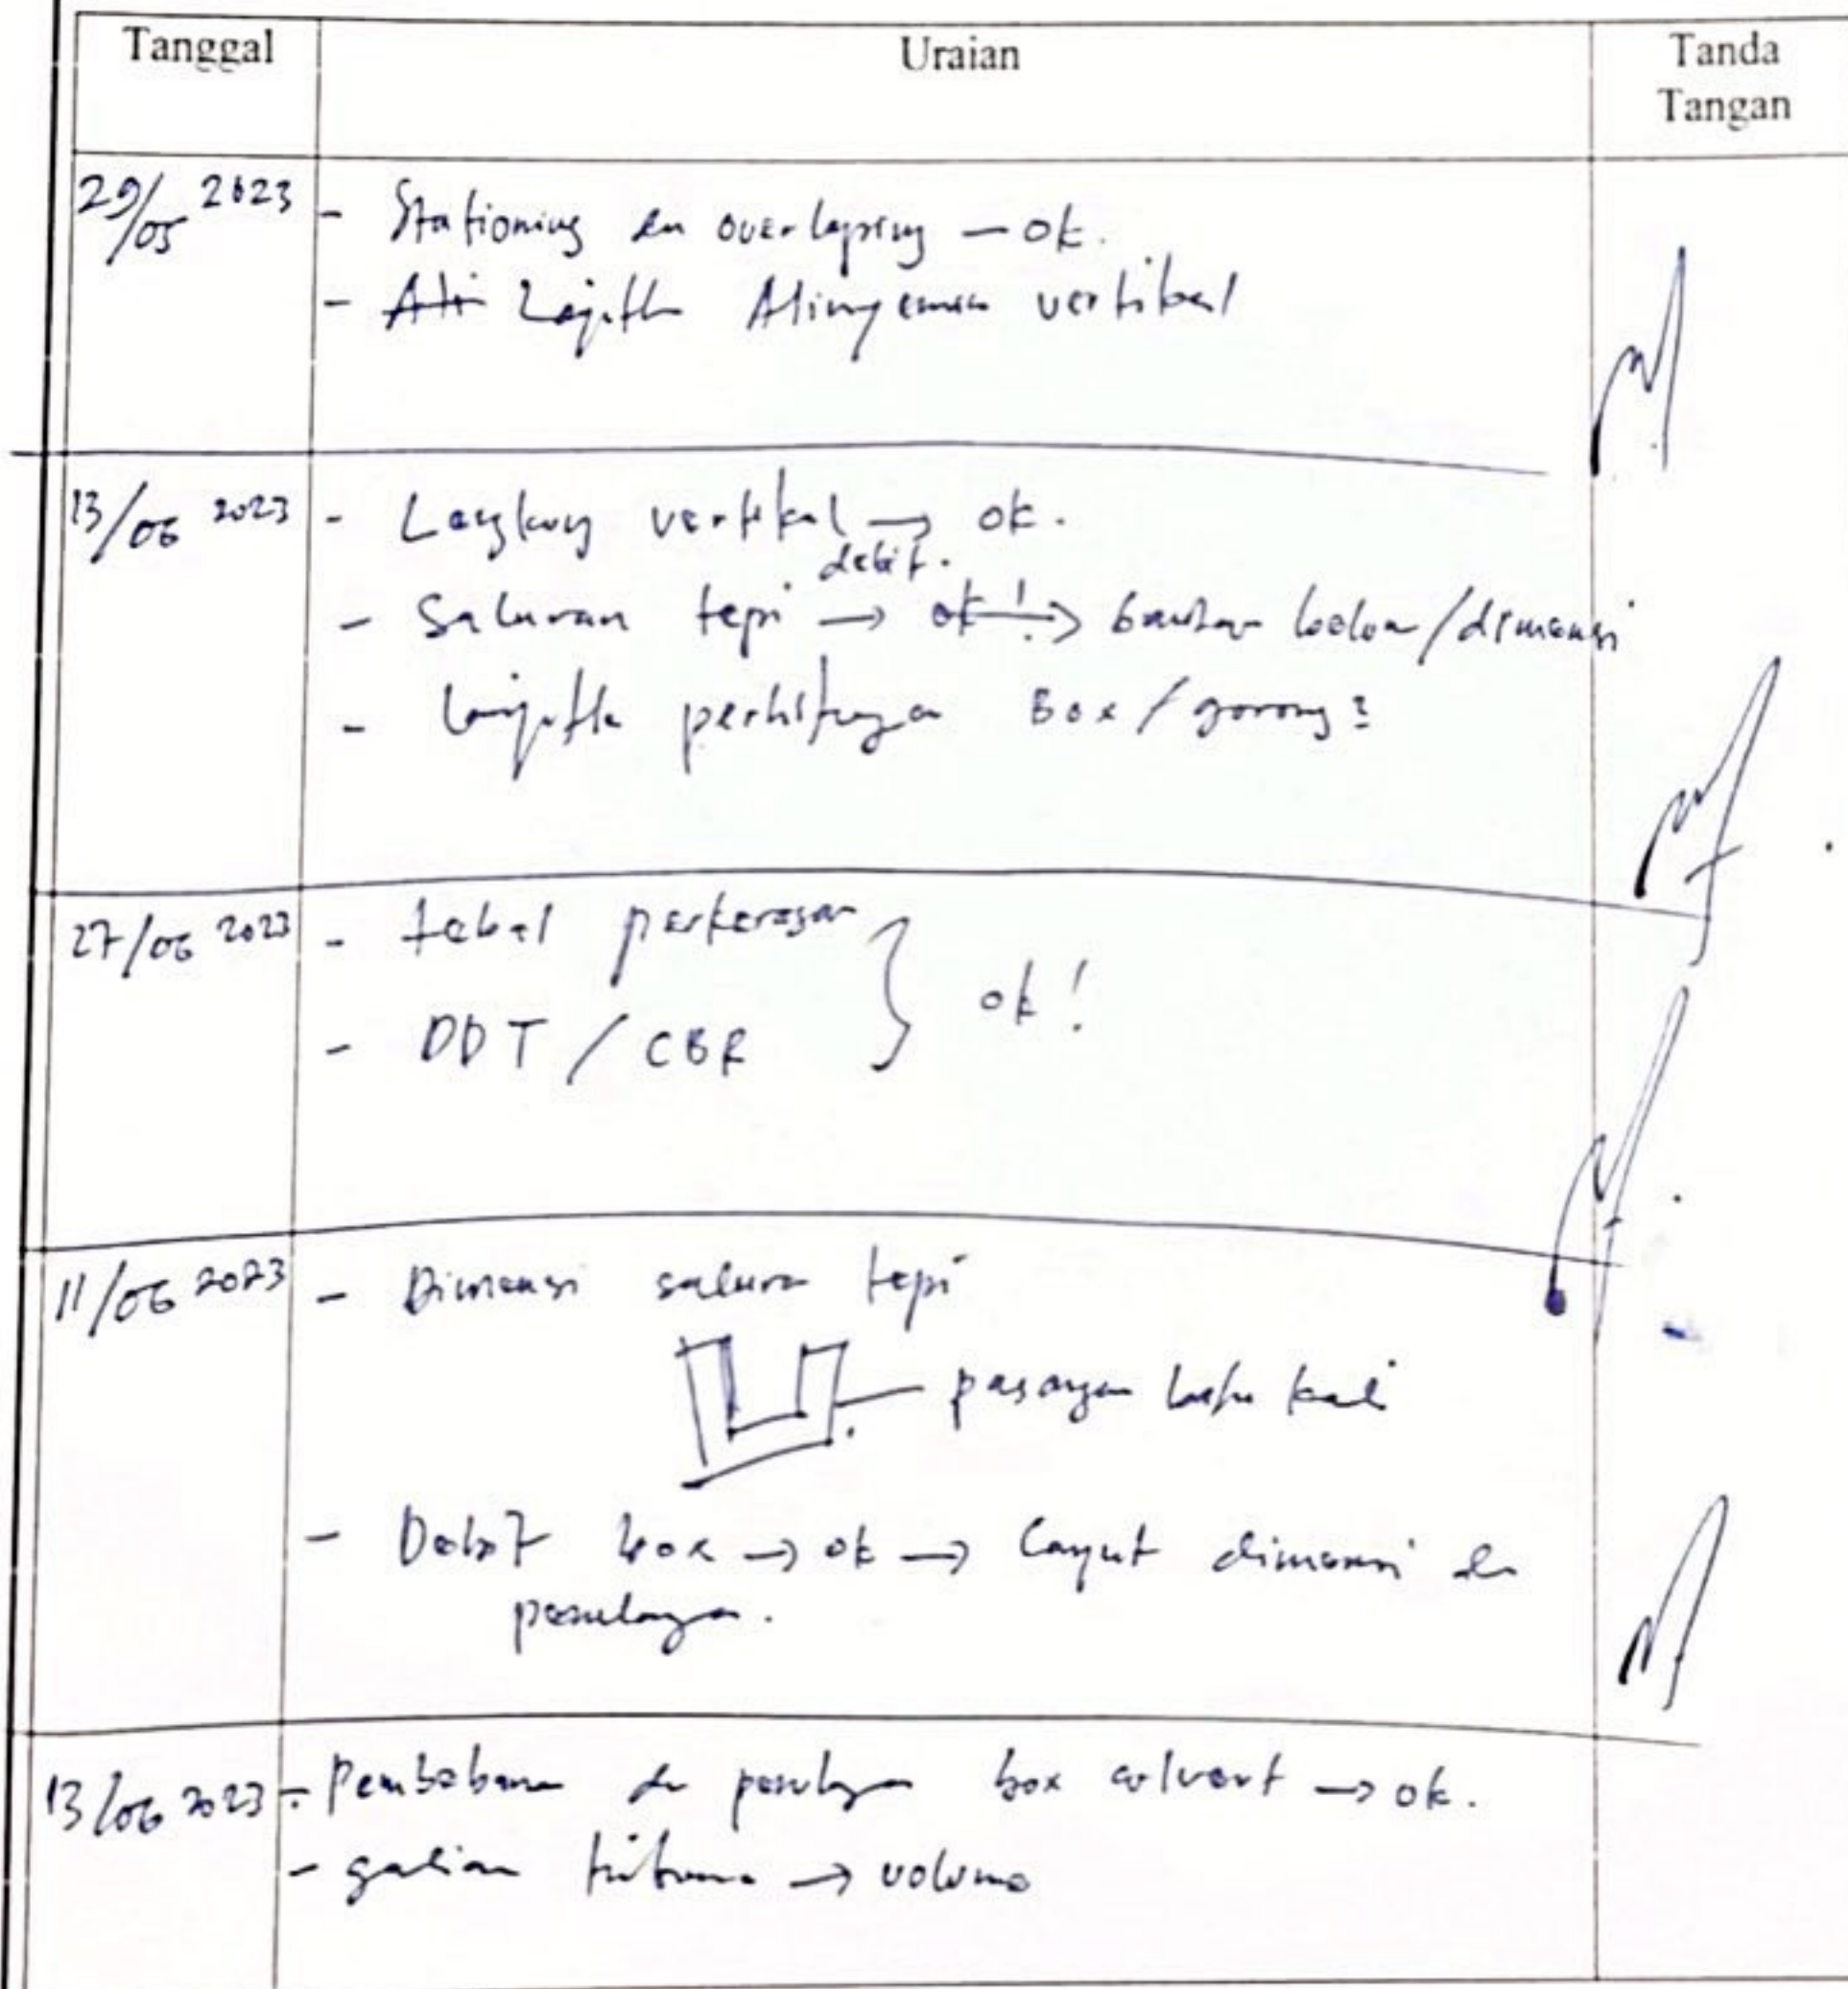 Tanggal Uraian Tanda
Tangan
29/05 2023 - Stationing dan overlaping - ok.
- Ali Lajutk Alinyemen vertikal
13/06 2023 - Lengkung vertikal → ok.
debit.
- Saluran tepi → ok! → buatan /dimensi
- Lanjutk perhitungan Box/gorong2
27/06 2023 - tebal perkerasan
ok!
- DDT / CBR
11/06 2023 - Dimensi saluran tepi
pasangan batu kali
- Debit box → ok → Lanjut dimensi dan
penulangan.
13/06 2023 - Pembebanan dan penulangan box culvert → ok.
- galian timbunan → volume